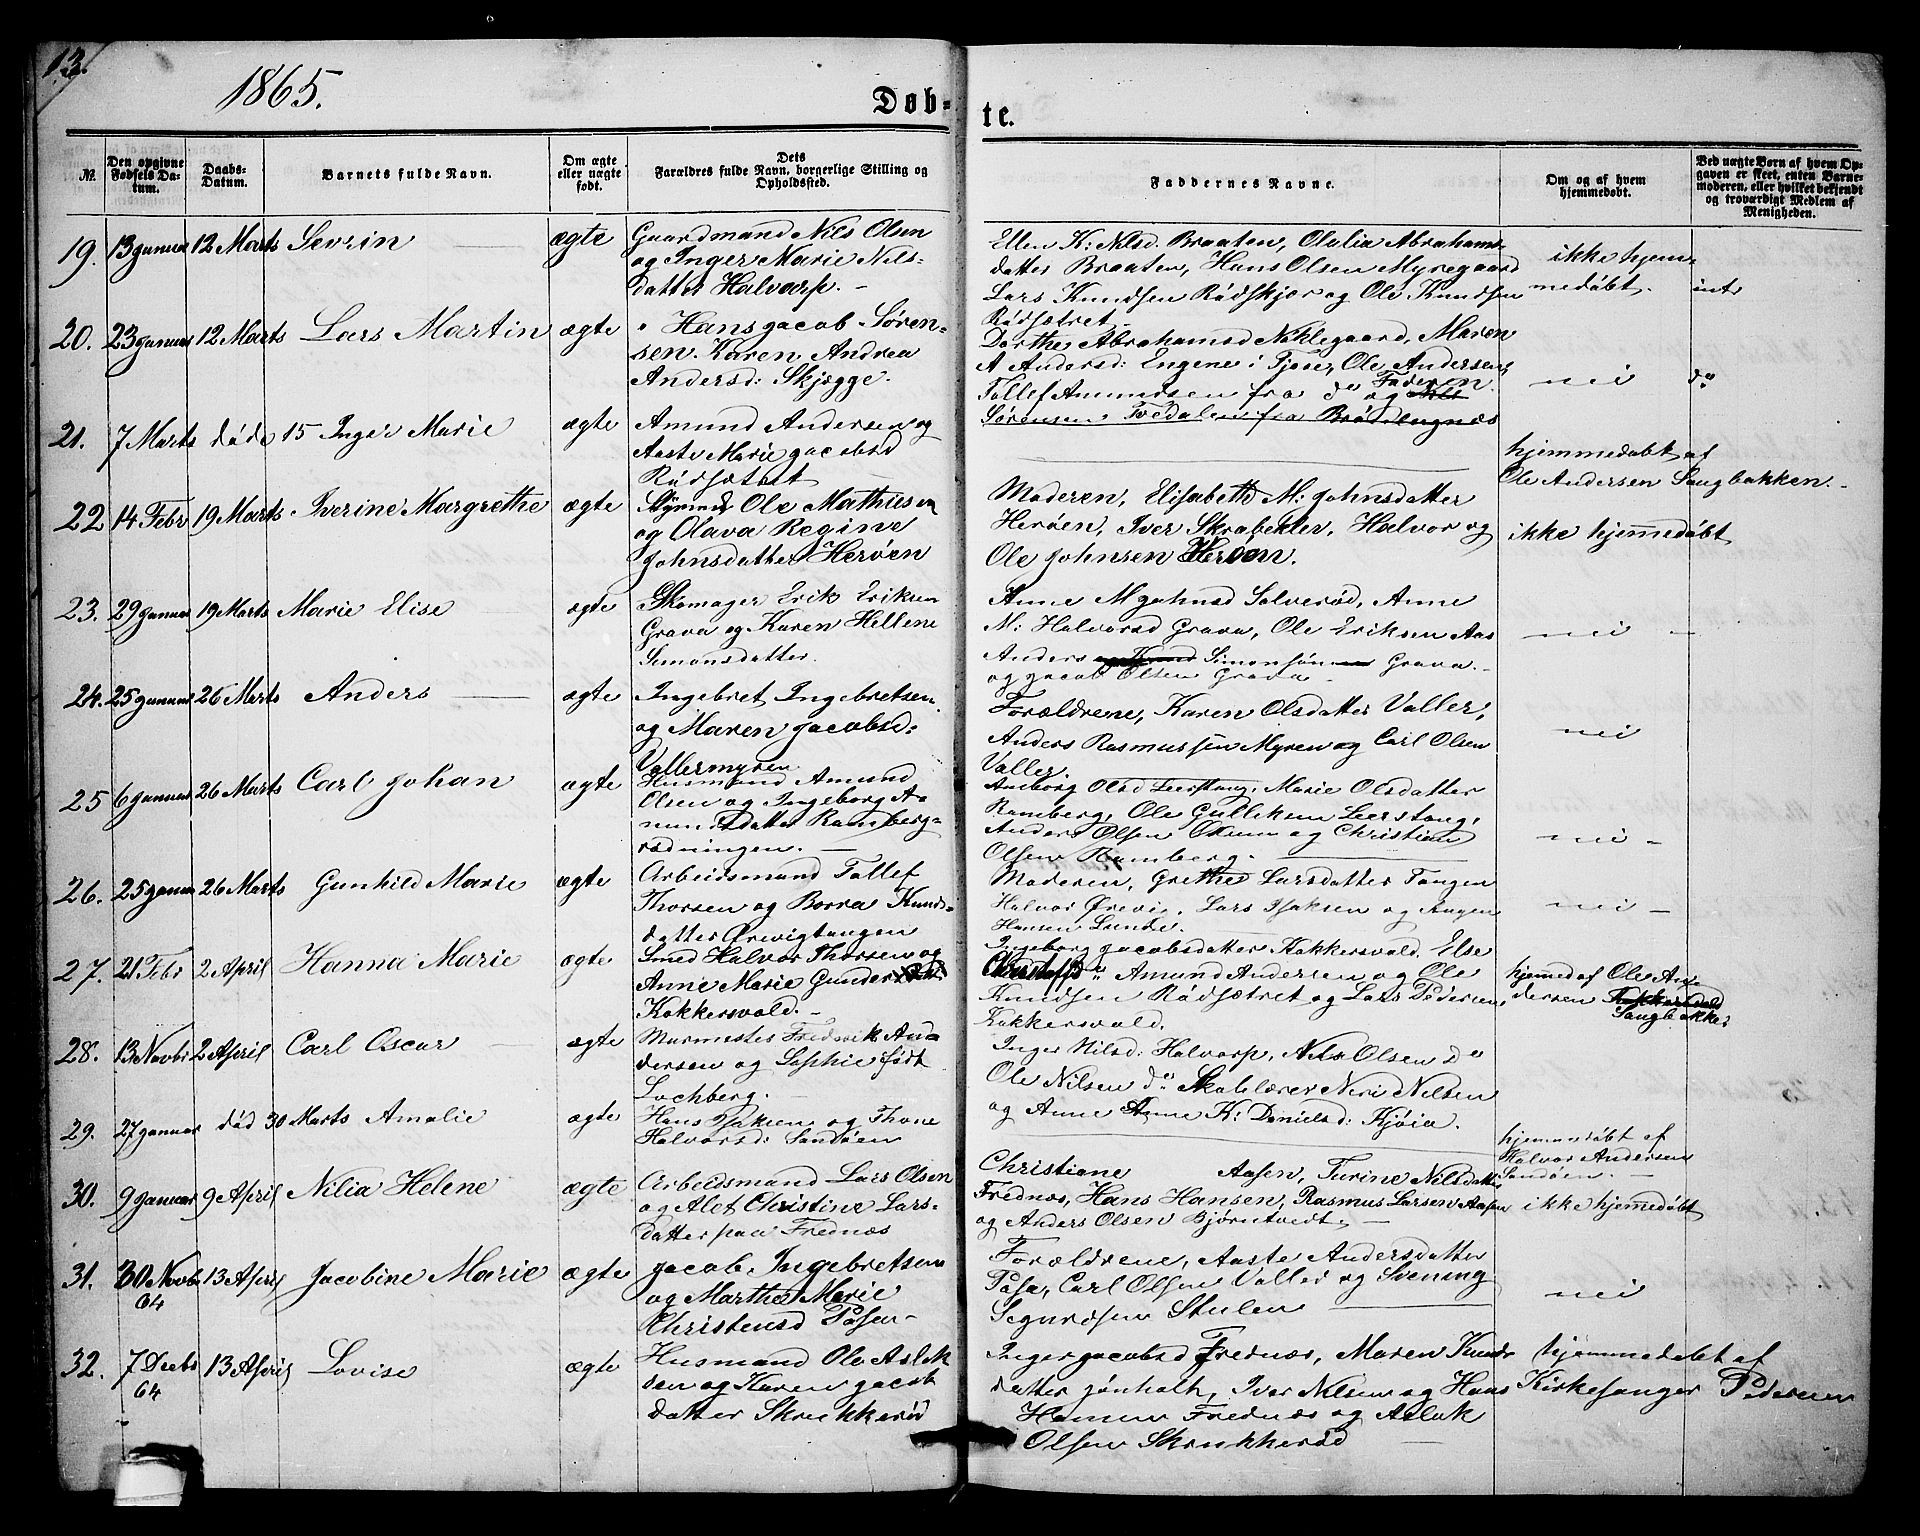 13.
1865.
Døb-
te.
№.
Den opgivne Fødsels Datum.
Daabs-Datum.
Barnets fulde Navn.
Om ægte eller uægte født.
Dets Forældres fulde Navn, borgerlige Stilling og Opholdssted.
Faddernes Navne.
Om og af hvem hjemmedøbt.
Ved uægte Børn af hvem Opgaven er skeet, enten Barnemoderen, eller hvilket bekjendt og troværdigt Medlem af Menigheden.
19. 13 Januar 12 Marts Severin ægte
Gaardmand Nils Olsen
og Inger Marie Nils-
datter Halvarp. -
Ellen K: Nilsd. Braaten, Olalia Abrahams-
datter Braaten, Hans Olsen Myregaard
Lars Knudsen Rødskjør og Ole Knudsen
Rødsætret.
ikke hjem-
medøbt.
20. 23 Januar 12 Marts Lars Martin ægte
" Hans Jacob Søren-
sen. Karen Andrea
Andersd: Skjegge.
Dorthe Abrahamsd Neklegaard, Maren
A Andersd: Engene i Tjøse, Ole Andersen,
Tollef Amundsen fra do og Faderen
Sørensen
nei
do
21. 7 Marts døde 15 Inger Marie ægte
Amund Andersen og
Aaste Marie Jacobsd
Rødsætret
hjemmedøbt af
Ole Andersen Saugbakken. -
22 14 Febr 19 Marts Iverine Margrethe ægte
Styrmd Ole Mathisen
og Olava Regine
Johnsdatter Herøen
Moderen, Elisabeth M: Johnsdatter
Herøen, Iver Skrabeklev, Halvor og
Ole Johnsen Herøen.
ikke hjemmedøbt
23. 29 Januar 19 Marts Marie Elise ægte
Skomager Erik Eriksen
Grava og Karen Hellene
Simonsdatter.
Anne M Johnsd Solverød, Anne
M: Halvorsd Grava, Ole Eriksen Aas
Anders Simonsøn Grava. -
og Jacob Olsen Grava -
nei -
24. 25 Januar 26 Marts Anders ægte
Ingebret Ingebretsen
og Maren Jacobsd:
Vallermyren
Forældrene, Karen Olsdatter Valler,
Anders Rasmussen Myren og Carl Olsen
Valler.
nei
25 6 Januar 26 Marts Carl Johan ægte
Husmand Amund
Olsen og Ingeborg A-
mundsdatter Ramberg-
rødningen. -
Anborg Olsd Leerstang, Marie Olsdatter
Ramberg, Ole Gulliksen Leerstang,
Anders Olsen og Christian
Olsen Ramberg.
nei -
26. 25 Januar 26 Marts Gunhild Marie ægte
Arbeidsmand Tollef
Thorsen og Borra Knuds-
datter Ørevigtangen
Moderen, Grethe Larsdatter Tangen
Halvor Ørevig, Lars Isaksen og
Hansen Lunde.
nei -
27. 21 Febr 2 April Hanna Marie ægte
Smed Halvor Thorsen og
Anne Marie Gunders
Kokkersvold. -
Ingeborg Jacobsdatter Kokkersvold, Else
Christofsd " Amund Andersen og Ole
Knudsen Rødsætret og Lars Pedersen
Kokkersvold.
hjemmed af Ole An-
dersen
Saugbakken
28. 13 Novbr 2 April Carl Oscar ægte
Murmester Frederik An-
dersen og Sophie født
Lochberg. -
Inger Nilsd: Halvarp, Nils Olsen do
Ole Nilsen do Skolelærer Neri Nilsen
og Anne Anne K: Danielsd: Kjøia.
29. 27 Januar død 30 Marts Amalie ægte
Hans Isaksen og Thone
Halvorsd: Sandøen
hjemmedøbt af
Halvor Andersen
Sandøen. -
30. 9 Januar 9 April Nilia Helene ægte
Arbeidsmand Lars Olsen
og Alet Christine Lars-
datter paa Frednæs
Christiane Aasen, Turine Nilsdatter
Frednæs, Hans Hansen, Rasmus Larsen Aasen
og Anders Olsen Bjørntvedt. -
ikke hjemmedøbt
31. 30 Novbr 64 13 April Jacobine Marie ægte
Jacob Ingebretsen
og Marthe Marie
Christensd Pøsen -
Forældrene, Aaste Andersdatter
Pøsa, Carl Olsen Valler og Svening
Segurdsen Stulen
nei
32. 7 Decbr 64 13 April Lovise ægte
Husmand Ole Aslak
sen og Karen Jacob
datter Skrukkerød
Inger Jacobsd Frednæs, Maren Knuds
datter Jønholt, Iver Nilsen og Hans
Hansen Frednæs og Aslak
Olsen Skrukkerød
hjemmedøbt af
Kirkesanger Pedersen